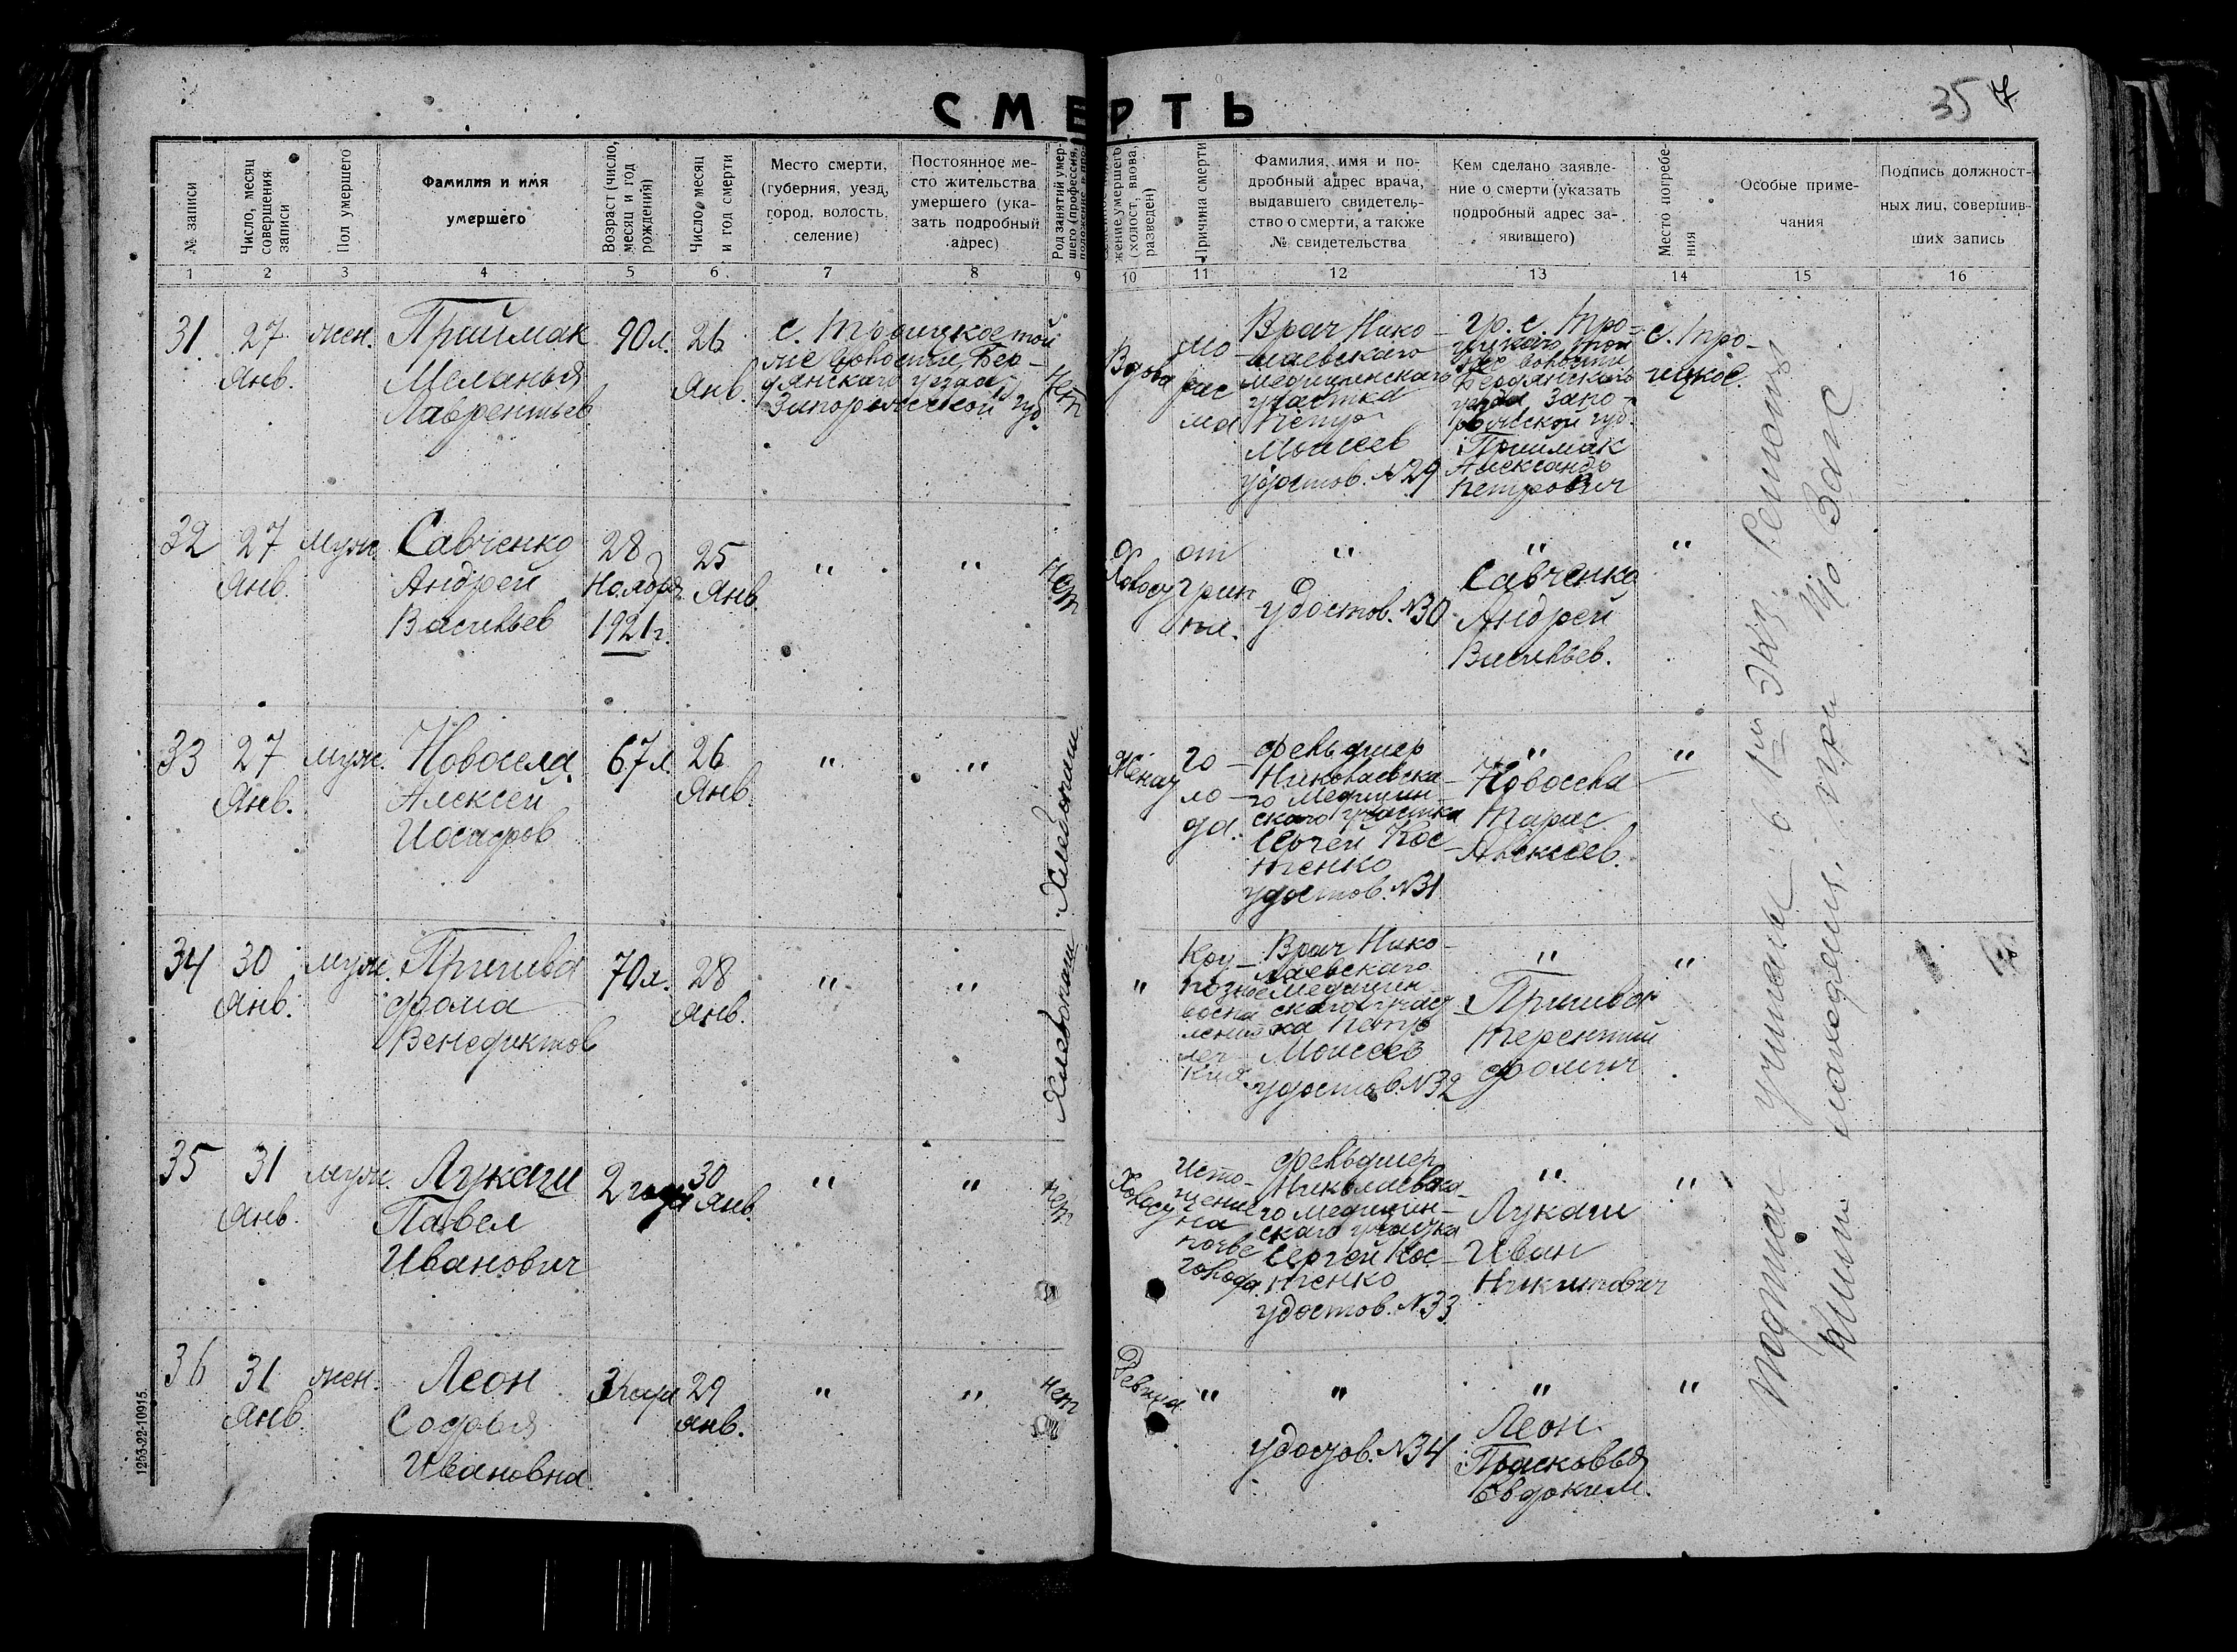 СМЕРТЬ
35
№ записи
Число, месяц
совершения
записи
Пол умершего
Фамилия и имя
умершего
Возраст (число,
месяц и год
рождения)
Число, месяц
и год смерти
Место смерти,
(губерния, уезд,
город, волость,
селение)
Постоянное ме-
сто жительства
умершего (ука-
зать подробный
адрес)
Род занятий умер-
шего (профессия,
жение умершего
(холост, вдова,
разведен)
Причина смерти
Фамилия, имя и по-
дробный адрес врача,
выдавшего свидетель-
ство о смерти, а также
№ свидетельства
Кем сделано заявле-
ние о смерти (указать
подробный адрес за-
явившего)
Место погребе-
ния
Особые приме-
чания
Подпись должност-
ных лиц, совершив-
ших запись
1 2 3 4 5 6 7 8 9 10 11 12 13 14 15 16
31
27
Янв.
жен.
Приймак
Меланья
Лаврентьев
90 л.
26
Янв.
с. Троицкое той
же волости, Бер-
дянского уезда,
Запорожской губ.
Нет
Вдова
Врач Нико-
лаевского
медицинского
участка
Петр
Моисеев
удостов. №29
гр. с. Тро-
ицкого той
же волости
Бердянского
уезда Запо-
рожской губ.
Приймак
Александр
Петрович
с. Тро-
ицкое.
32
27
Янв.
муж.
Савченко
Андрей
Васильев
28
Ноября
1921 г.
25
Янв.
"
"
Нет
от
грип
па.
"
удостов. №30
"
Савченко
Андрей
Васильев.
"
33
27
Янв.
муж.
Новосела
Алексей
Иосифов
67 л.
26
Янв.
"
"
Хлебопаш.
Женат
го-
ло-
да.
фельдшер
Николаевско-
го медицин-
ского участка
Сергей Кос-
тенко
удостов. №31
"
Новосела
Тарас
Алексеев.
"
34
30
Янв.
муж.
Пришва
Фома
Венедиктов
70 л.
28
Янв.
"
"
Хлебопаш.
"
Кру-
позное
воспа
ление
лег-
ких
Врач Нико-
лаевского
медицин-
ского участ
ка Петр
Моисеев
удостов. №32
"
Пришва
Терентий
Фомич
"
35
31
Янв.
муж.
Лукаш
Павел
Иванович
2 года
30
Янв.
"
"
Нет
Исто-
щение
на
почве
голода.
фельдшер
Николаевско-
го медицин-
ского участка
Сергей Кос-
тенко
удостов. №33.
"
Лукаш
Иван
Никитович
"
36
31
Янв.
жен.
Леон
Софья
Ивановна
3 года
29
Янв.
"
"
Нет
Девица
"
"
удостов. №34
"
Леон
Прасковья
Евдоким.
"
1253-22-10915.